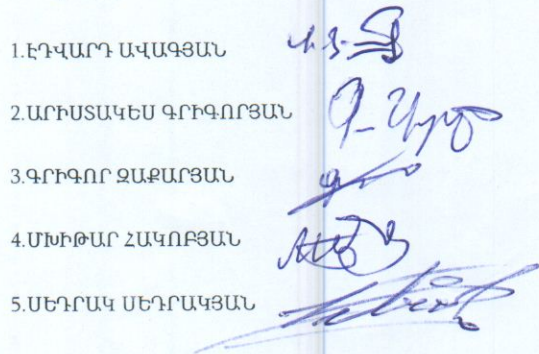 1.ԷԴՎԱՐԴ ԱՎԱԳՅԱՆ
2.ԱՐԻՍՏԱԿԵՍ ԳՐԻԳՈՐՅԱՆ
3.ԳՐԻԳՈՐ ԶԱՔԱՐՅԱՆ
4.ՄԽԻԹԱՐ ՀԱԿՈԲՅԱՆ
5.ՍԵԴՐԱԿ ՍԵԴՐԱԿՅԱՆ